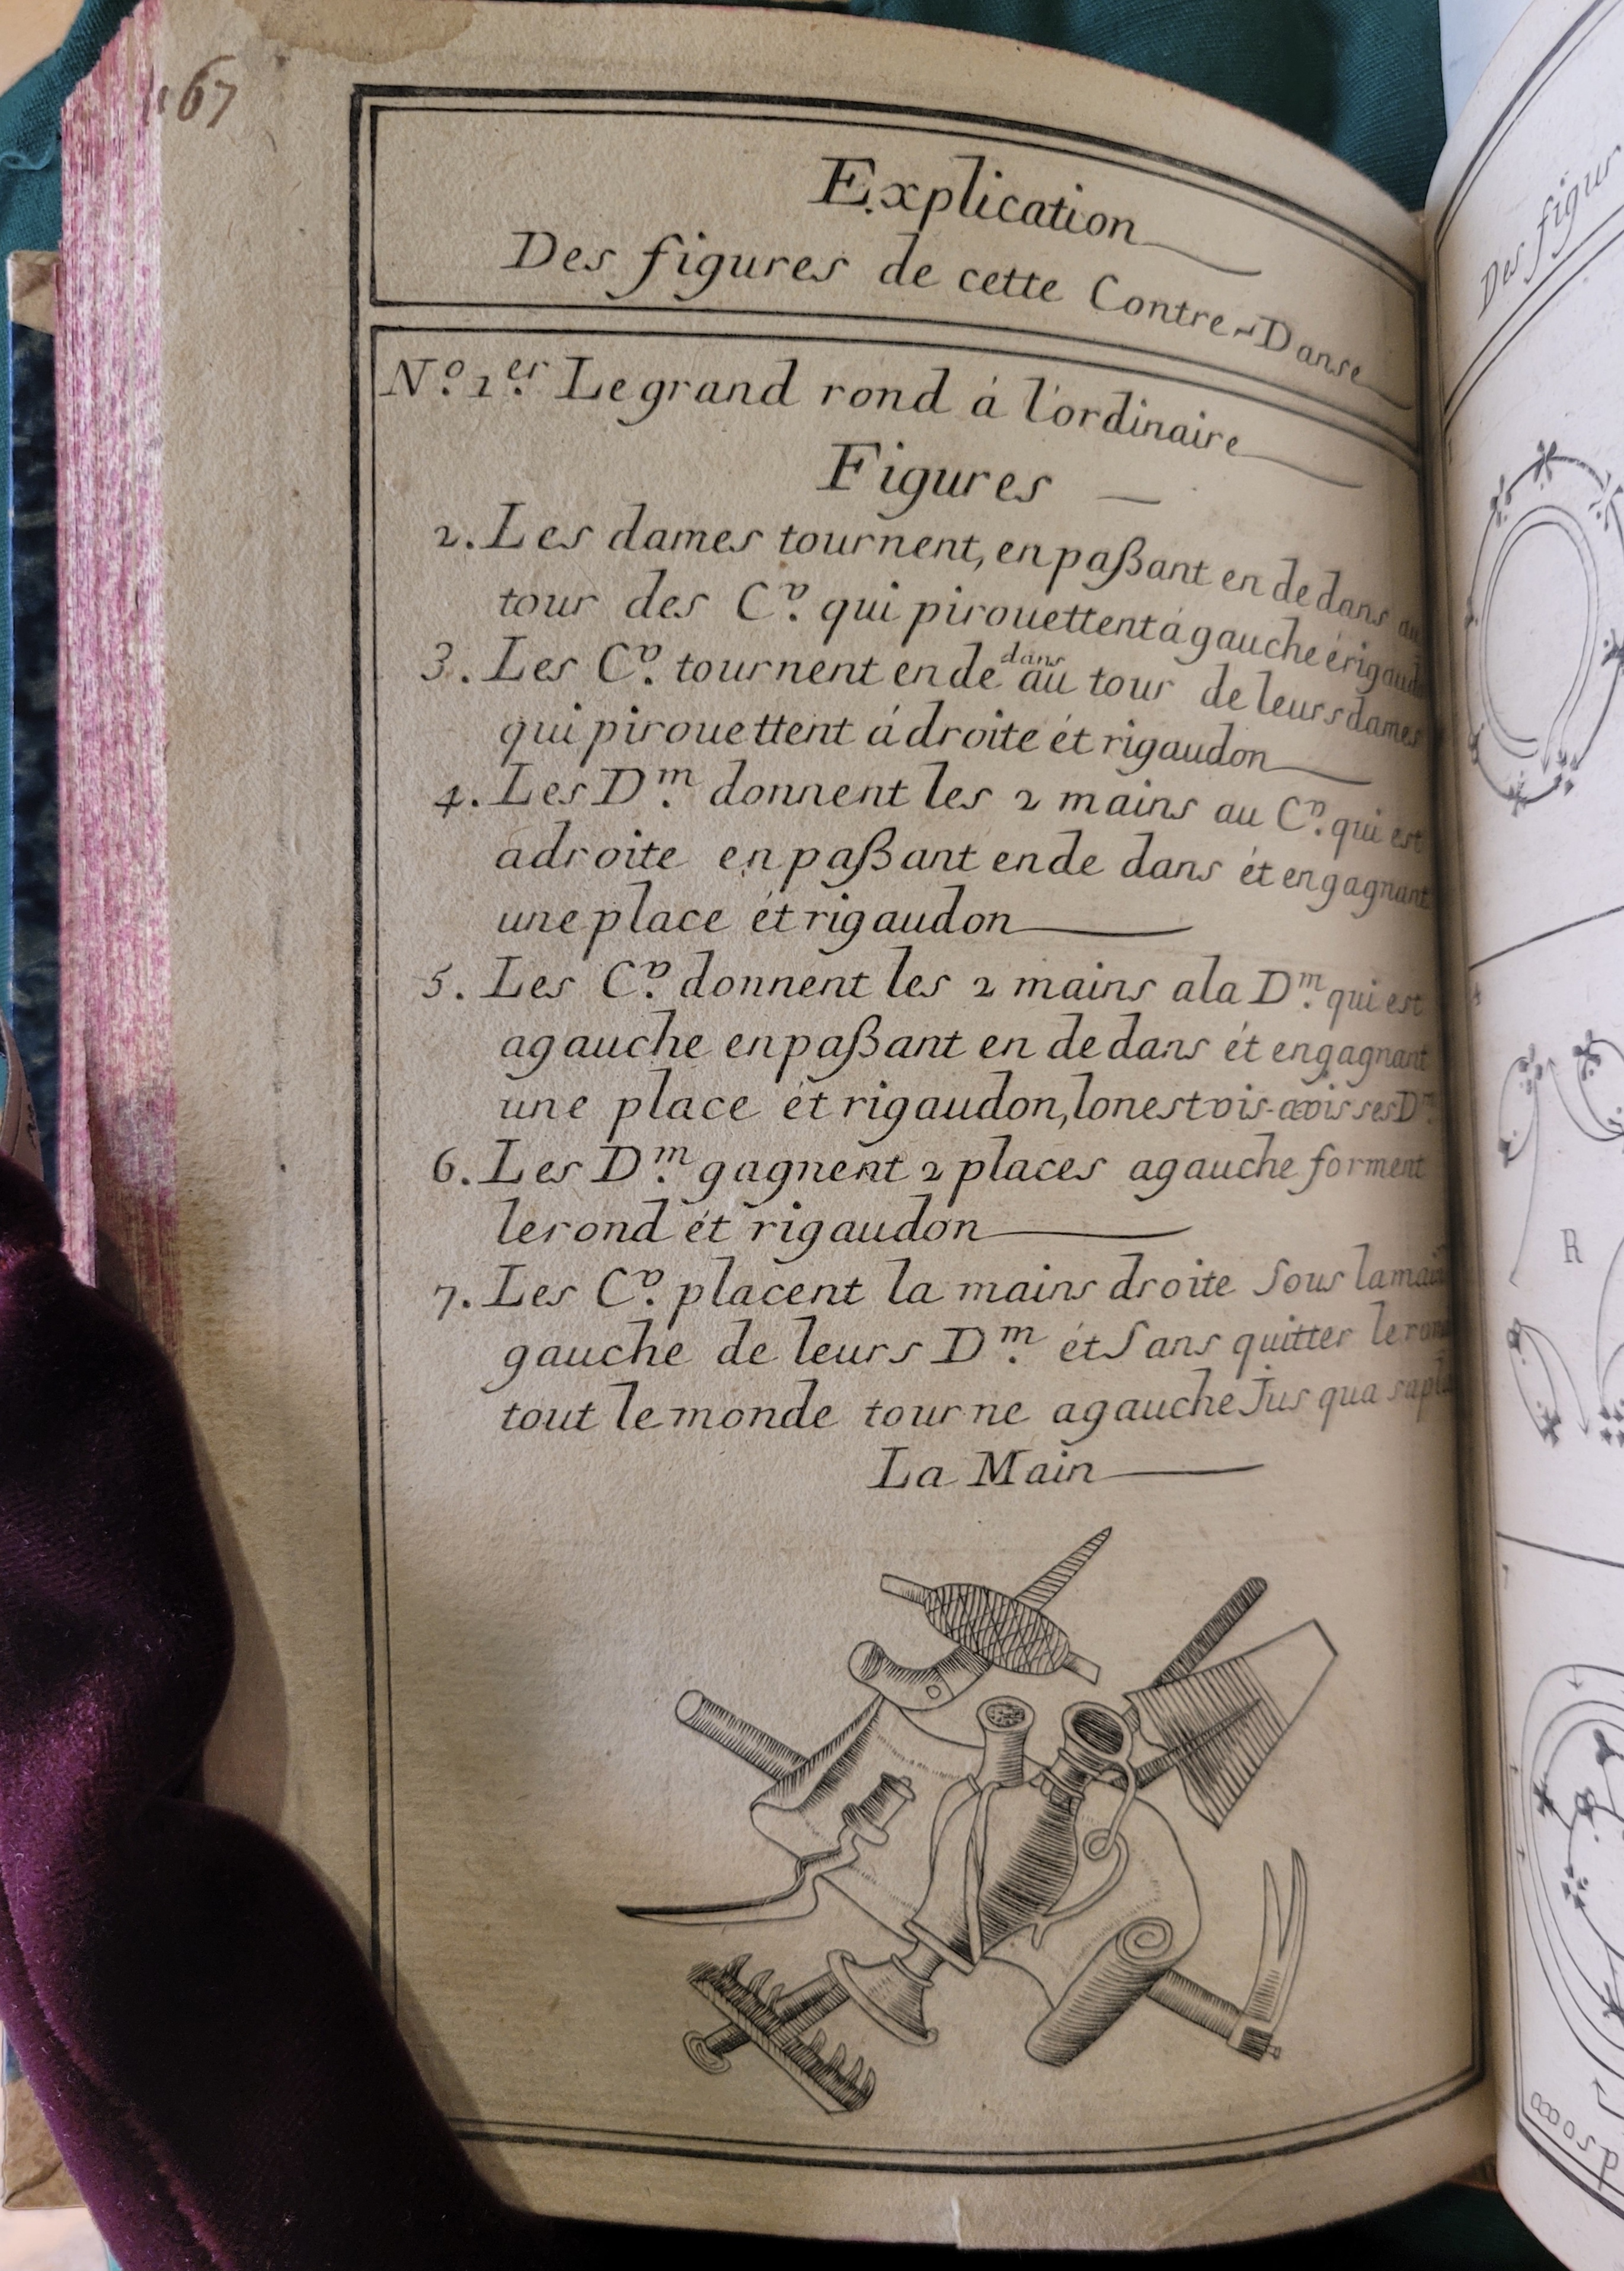 167
Explication
Des figures de cette Contre-Danse
N.º 1.er Le grand rond á l'ordinaire
Figures
2. Les dames tournent, en paßant en de dans au
tour des C.v qui pirouettent á gauche é rigaud
3. Les C.v tournent en de dans au tour de leurs dames
qui pirouettent á droite ét rigaudon
4. Les D.m donnent les 2 mains au C.v qui est
a droite en paßant en de dans ét en gagnant
une place ét rigaudon
5. Les C.v donnent les 2 mains a la D.m qui est
a gauche en paßant en de dans ét en gagnant
une place ét rigaudon, lon est vis-a vis ses D.m
6. Les D.m gagnent 2 places a gauche forment
le rond ét rigaudon
7. Les C.v placent la mains droite Sous la main
gauche de leurs D.m ét Sans quitter le rond
tout le monde tourne a gauche Jus qua sa
La Main
Des figur
R